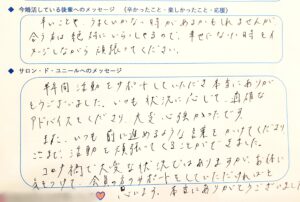 ◆ 今婚活している後輩へのメッセージ （辛かったこと・楽しかったこと・応援）
辛いことや、うまくいかない時があるかもしれませんが
合う方は絶対にいらっしゃるので、幸せになった時をイ
メージしながら頑張ってください。
◆ サロン・ド・ユニールへのメッセージ
半年間 活動をサポートしていただき本当にありが
とうございました。いつも状況に応じて、適確な
アドバイスをくださり 大変心強かったです。
また、いつも前に進めるような言葉をかけてくださり
ここまで活動を頑張ってくることができました。
コロナ禍で大変な状況ではありますが、お体に
気をつけて、会員の方のサポートをしていただければと
思います。本当にありがとうございました